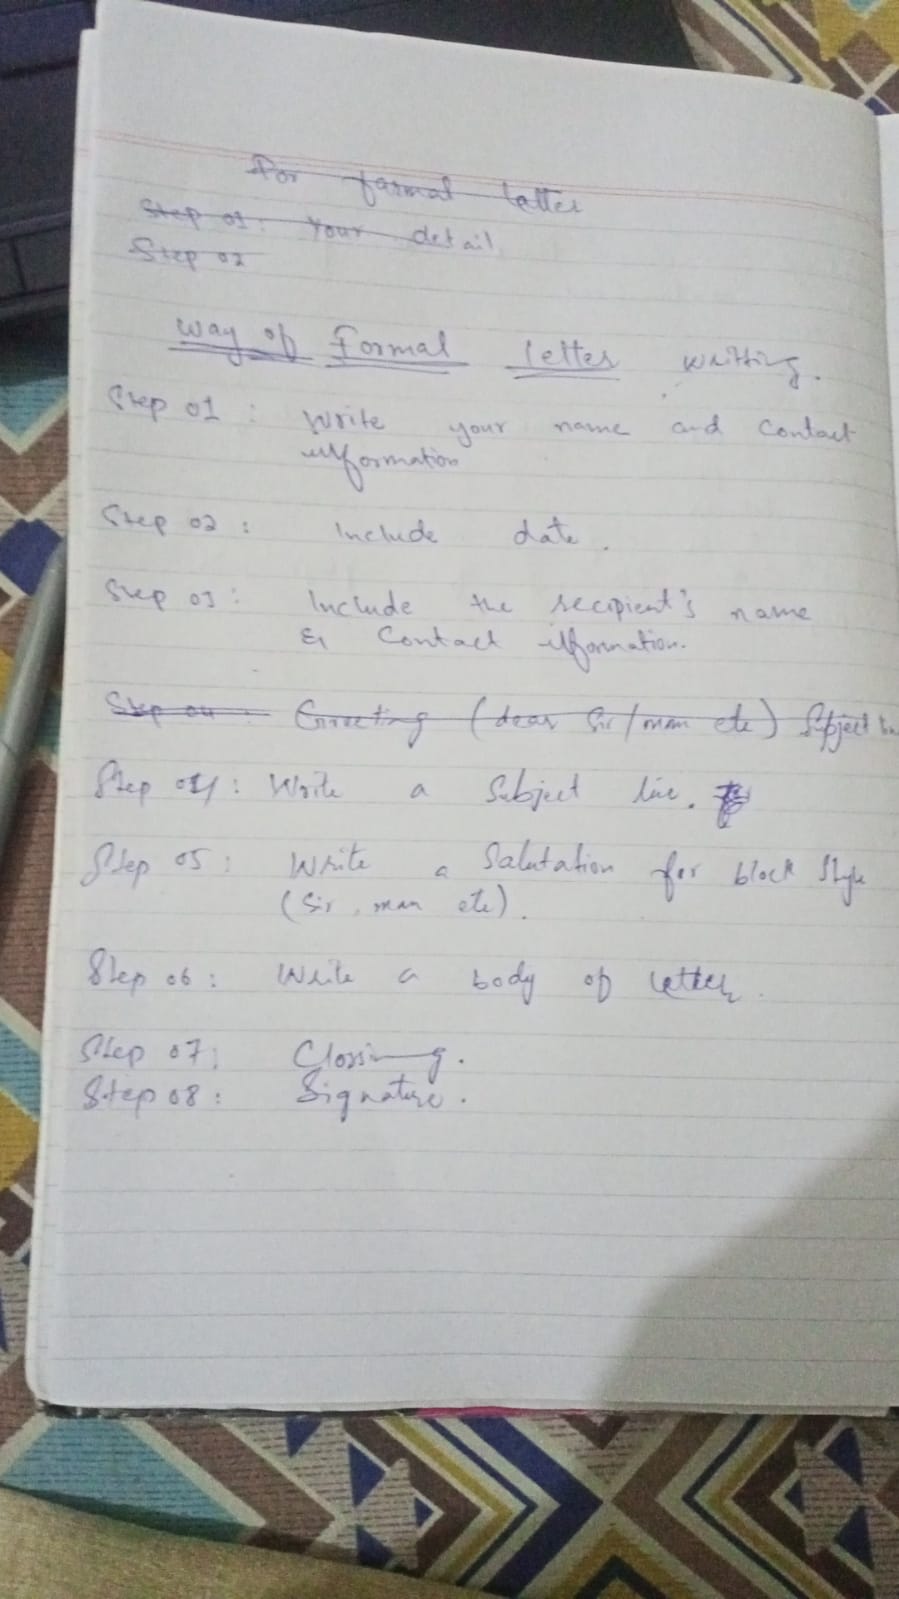 For formal letter
Step 01: Your detail
Step 02
Way of Formal letter writting.
Step 01: Write your name and Contact
information
Step 02: Include date.
Step 03: Include the recipient's name
& Contact information.
Step 04: Greeting (dear Sir/mam etc) Subject
Step 04: Write a Subject line.
Step 05: Write a Salutation for block style
(Sir, mam etc).
Step 06: Write a body of letter.
Step 07: Clossing.
Step 08: Signature.